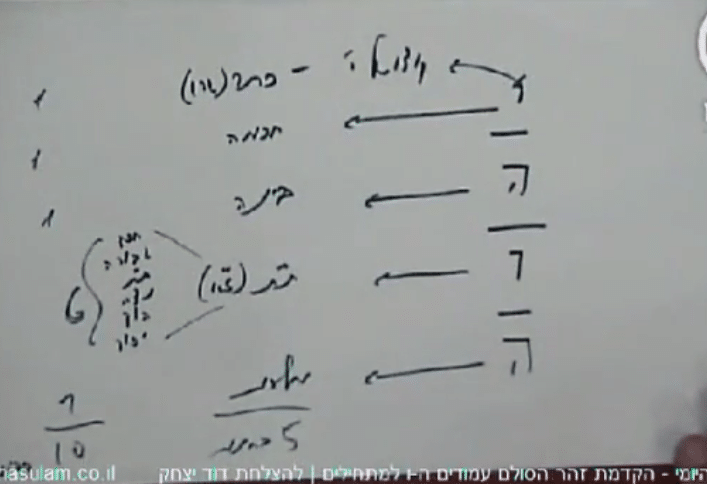 קוצו של י' - כתר (א"ו) 1
י חכמה 1
ה בינה 1
ו ת"ת (ז"א)
חסד
גבורה
ת"ת
נצח
הוד
יסוד
6
ה מלכות 1
5 בחינות 10
היומי - הקדמת זהר הסולם עמודים ה-ו למתחילים | להצלחת דוד יצחק
hasulam.co.il